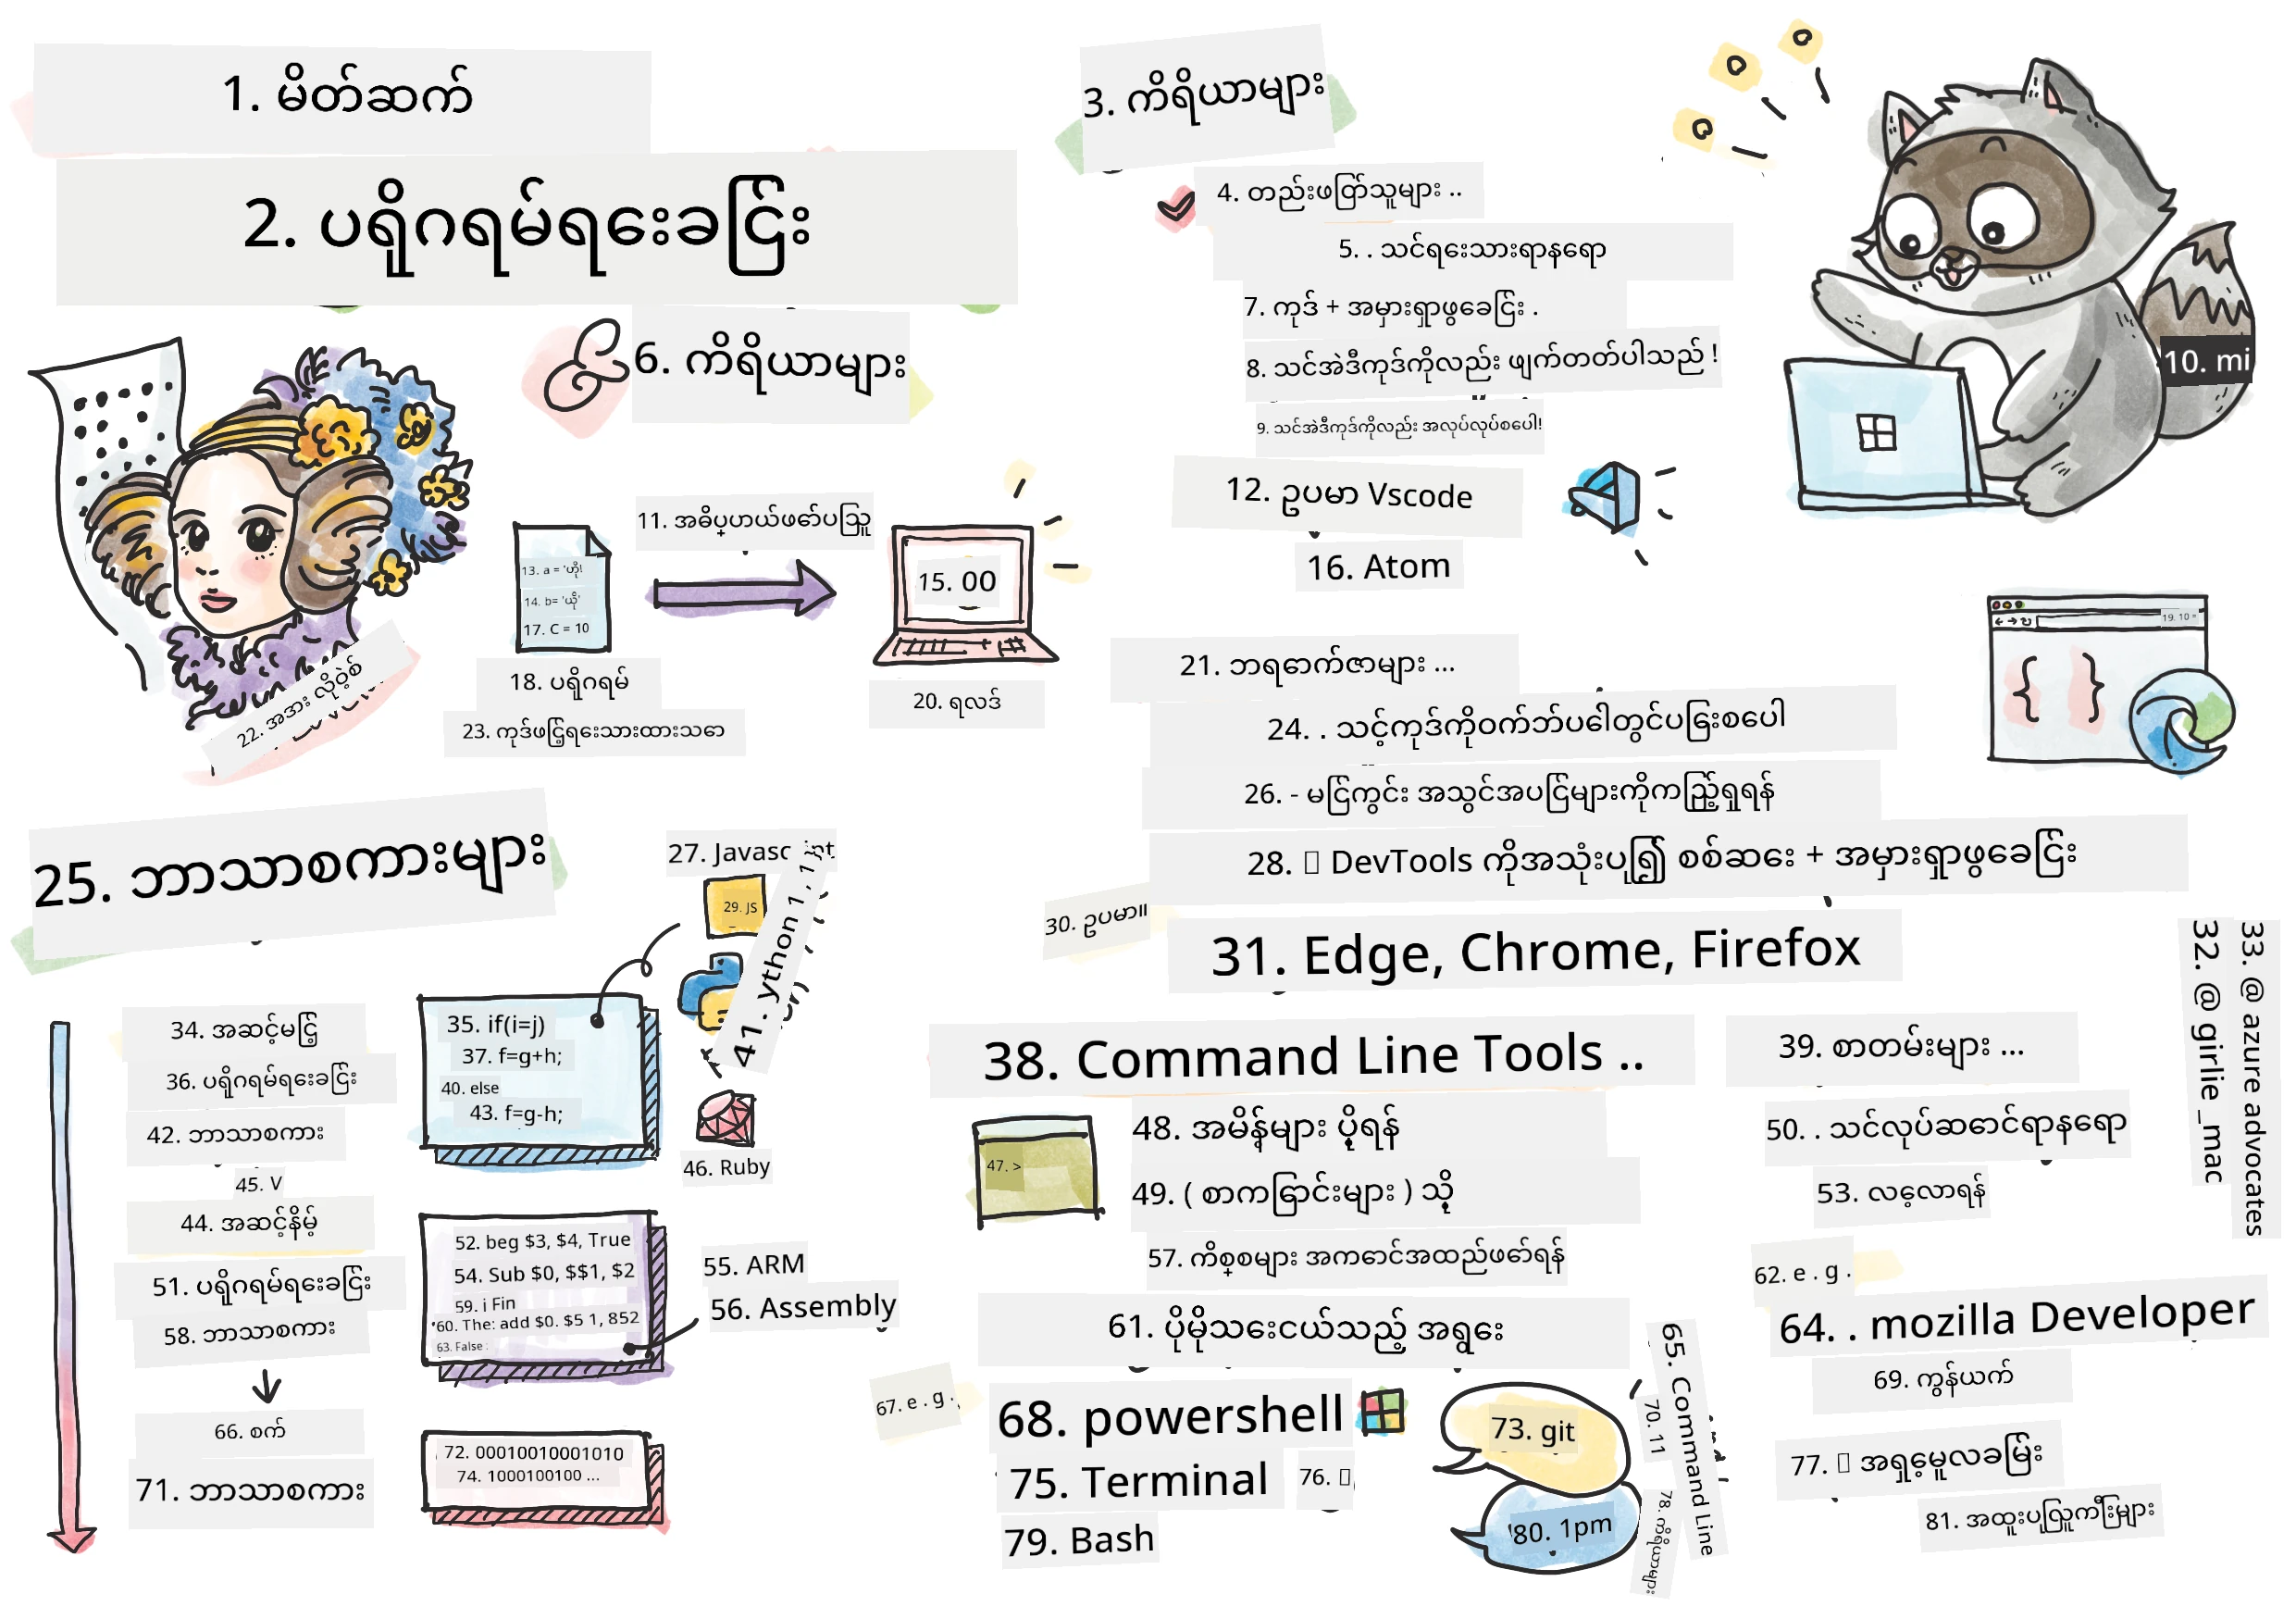 1. မိတ်ဆက်
2. ပရိုဂရမ်ရေးခြင်း
6. ကိရိယာများ
11. အဓိပ္ပာယ်ဖော်ပြသူ
13. a = 'ဟို!
14. b= 'ယို'
17. C = 10
15. 00
18. ပရိုဂရမ်
23. ကုဒ်ဖြင့်ရေးသားထားသော
20. ရလဒ်
22. အဒား လိုဝဲ့စ်
25. ဘာသာစကားများ
27. Javasc
29. JS
41. ython 1, 1,
34. အဆင့်မြင့်
36. ပရိုဂရမ်ရေးခြင်း
42. ဘာသာစကား
45. V
44. အဆင့်နိမ့်
51. ပရိုဂရမ်ရေးခြင်း
58. ဘာသာစကား
66. စက်
71. ဘာသာစကား
35. if(i=j)
37. f=g+h;
40. else
43. f=g-h;
46. Ruby
52. beg $3, $4, True
54. Sub $0, $$1, $2
59. i Fin
60. The: add $0. $5 1, 852
63. False :
55. ARM
56. Assembly
72. 00010010001010
74. 1000100100 ...
3. ကိရိယာများ
4. တည်းဖြတ်သူများ ..
5. . သင်ရေးသားရာနေရာ
7. ကုဒ် + အမှားရှာဖွေခြင်း .
8. သင်အဲဒီကုဒ်ကိုလည်း ဖျက်တတ်ပါသည် !
9. သင်အဲဒီကုဒ်ကိုလည်း အလုပ်လုပ်စေပါ!
10. mi
12. ဥပမာ Vscode
16. Atom
19. 10 =
21. ဘရောက်ဇာများ ...
24. . သင့်ကုဒ်ကိုဝက်ဘ်ပေါ်တွင်ပြေးစေပါ
26. - မြင်ကွင်း အသွင်အပြင်များကိုကြည့်ရှုရန်
28. DevTools ကိုအသုံးပြု၍ စစ်ဆေး + အမှားရှာဖွေခြင်း
30. ဥပမာ။
31. Edge, Chrome, Firefox
32. @ girlie _mac
33. @ azure advocates
38. Command Line Tools ..
47. >
48. အမိန့်များ ပို့ရန်
49. ( စာကြောင်းများ ) သို့
57. ကိစ္စများ အကောင်အထည်ဖော်ရန်
61. ပိုမိုသေးငယ်သည့် အရွေး
67. e . g .
68. powershell
75. Terminal
76.
79. Bash
73. git
80. 1pm
65. Command Line
70. 11
78. ကိရိယာများ
39. စာတမ်းများ ...
50. . သင်လုပ်ဆောင်ရာနေရာ
53. လေ့လာရန်
62. e . g .
64. . mozilla Developer
69. ကွန်ယက်
77. အရှေ့မူလခြမ်း
81. အထူးပြုလူကြီးများ